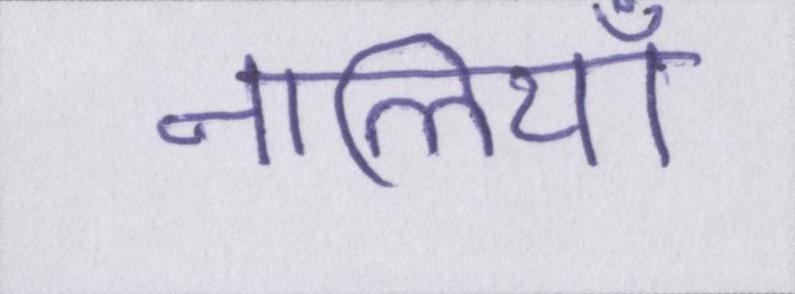 नालियाँ